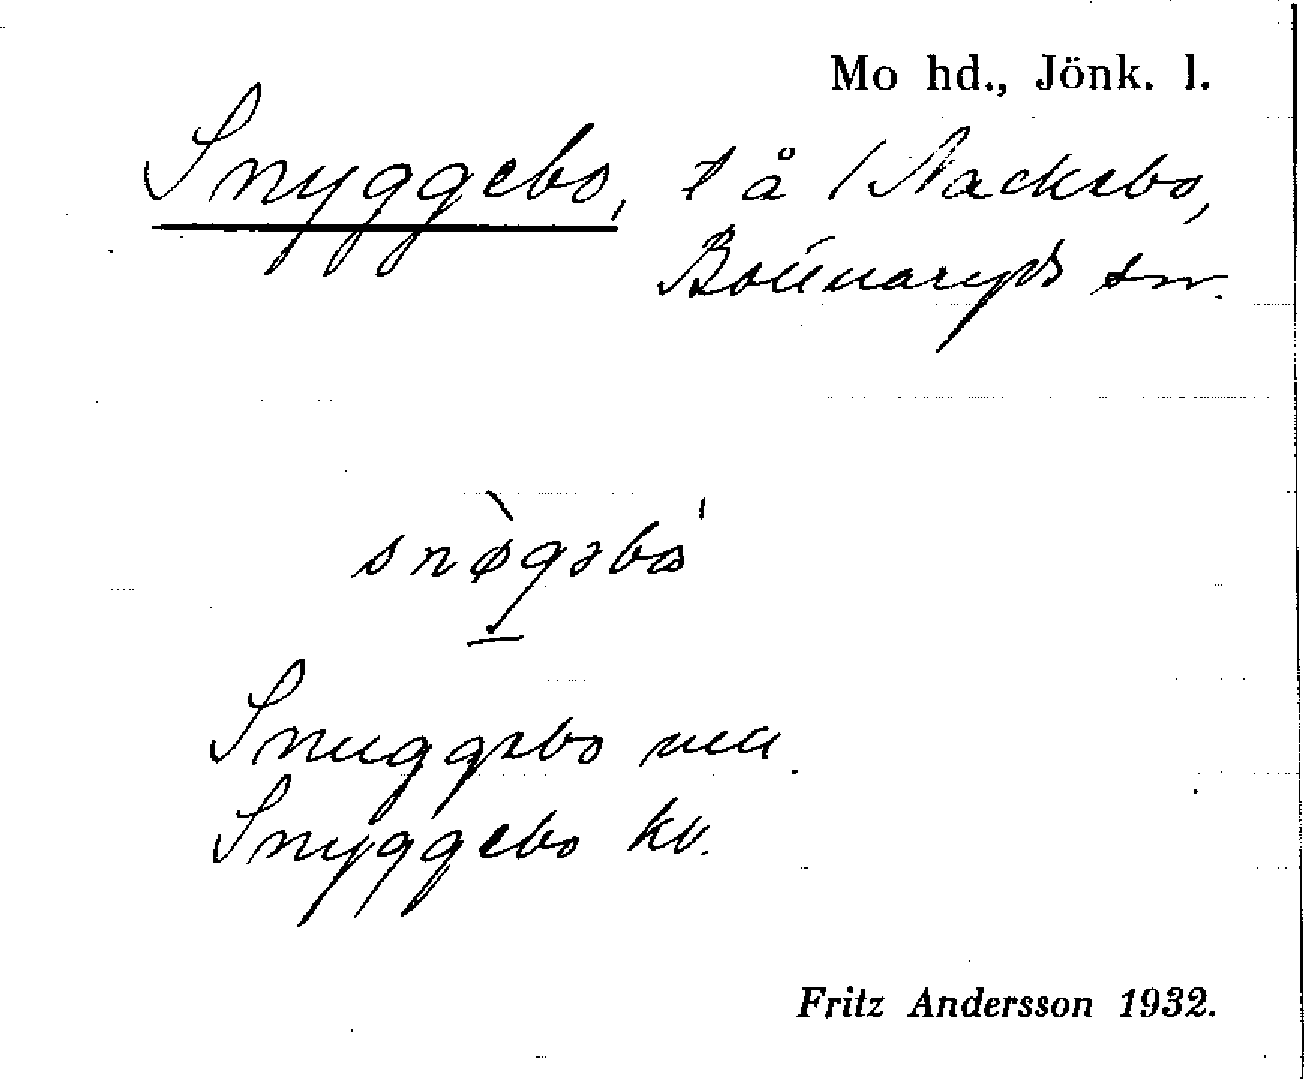 Mo hd., Jönk. l.
Snyggebo, t å / Nackebo,
Bottnaryds sn.
snø̀gəbo'
Snuggebo
Snyggebo kv.
Fritz Andersson 1932.